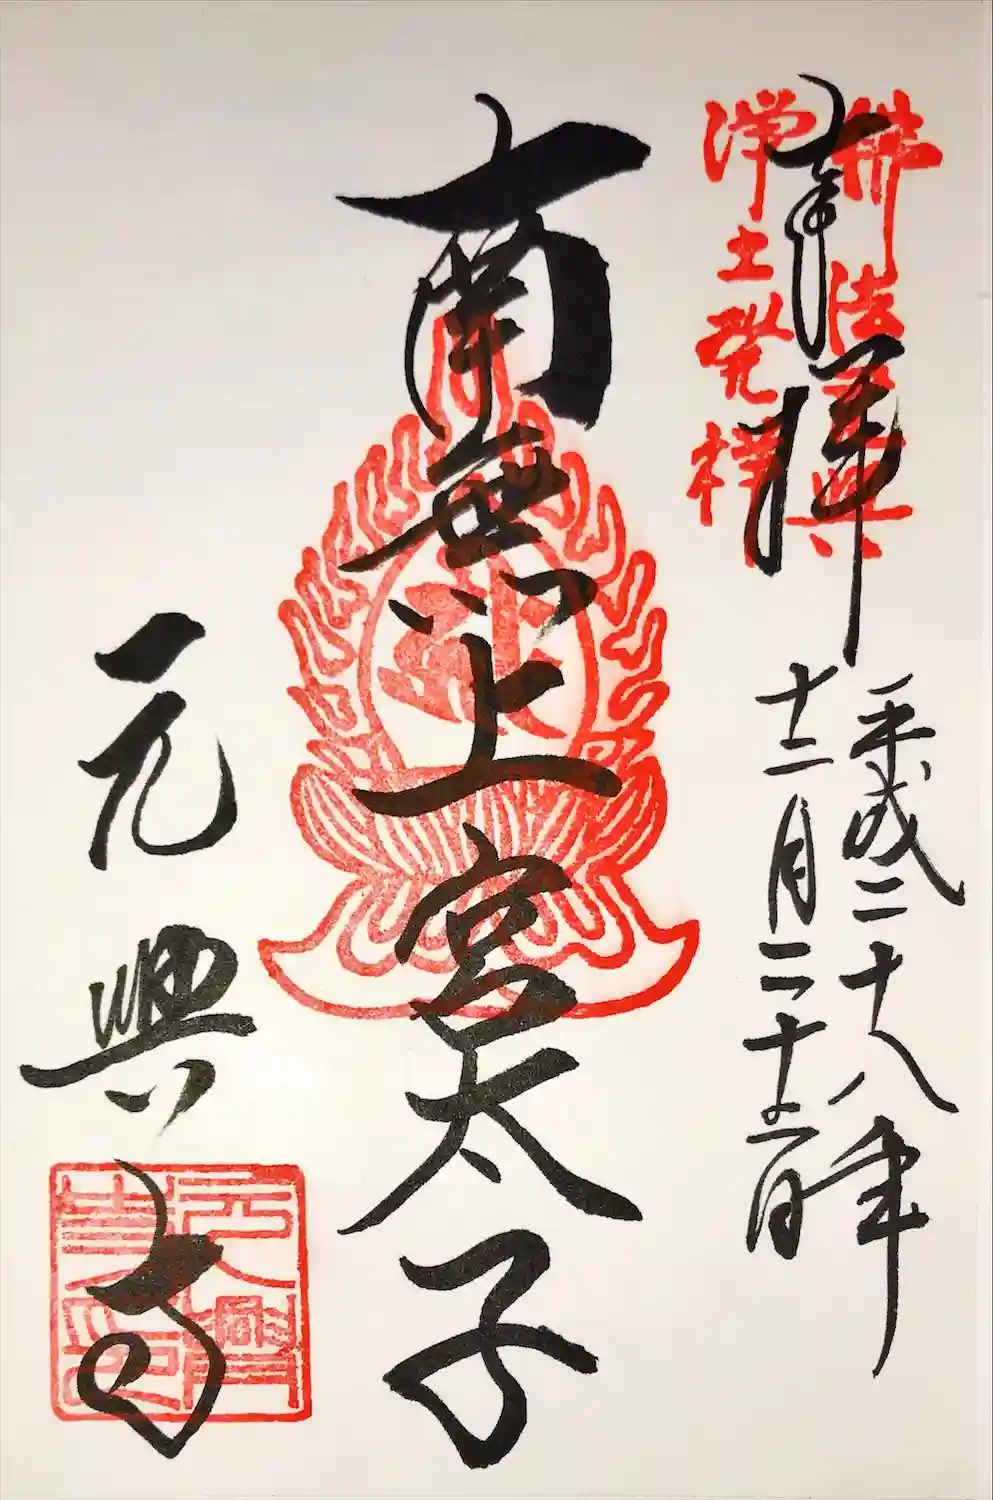 佛法元興
浄土発祥
奉拝
平成二十八年
十二月二十三日
南無上宮太子
元興寺
元興寺印